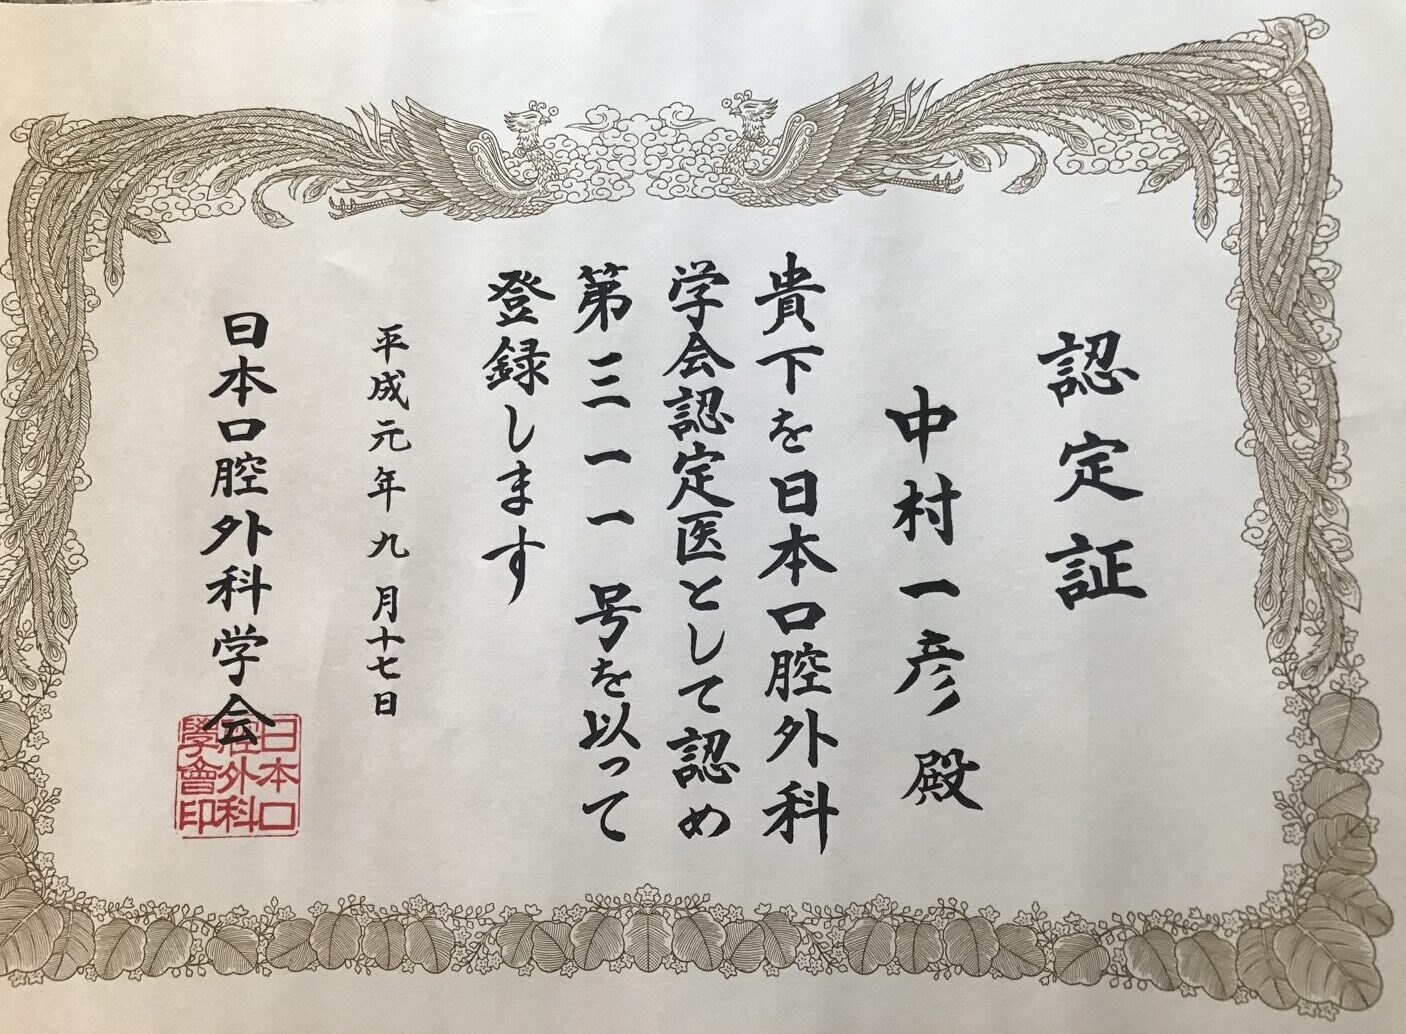 認定証
中村一彦殿
貴下を日本口腔外科
学会認定医として認め
第三一一号を以って
登録します
平成元年九月十七日
日本口腔外科学会
日本口
腔外科
學會印